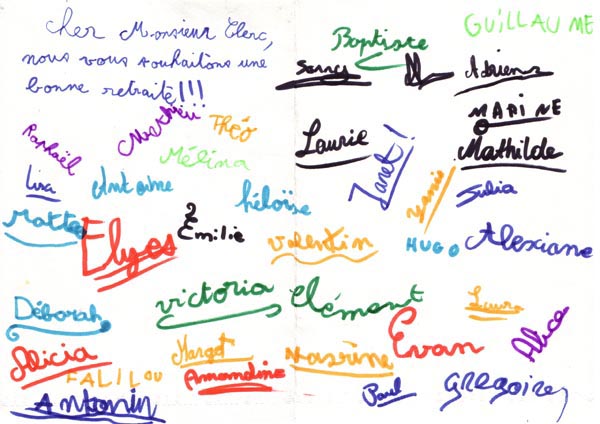 Cher Monsieur Clerc,
nous vous souhaitons une
bonne retraite!!!
GUILLAUME
Baptiste
Adrien
Mathieu
Théo
MARINE
Raphaël
Mélina
Laurie
Mathilde
Janet!
Yanis
Lisa
Antoine
héloïse
Julia
Matteo
Elyes
Emilie
Valentin
HUGO
Alexiane
Déborah
Victoria
Clément
Laura
Alicia
Margot
Nasrine
Evan
Alice
FALILOU
Amandine
Antonin
Paul
GREGOIRE